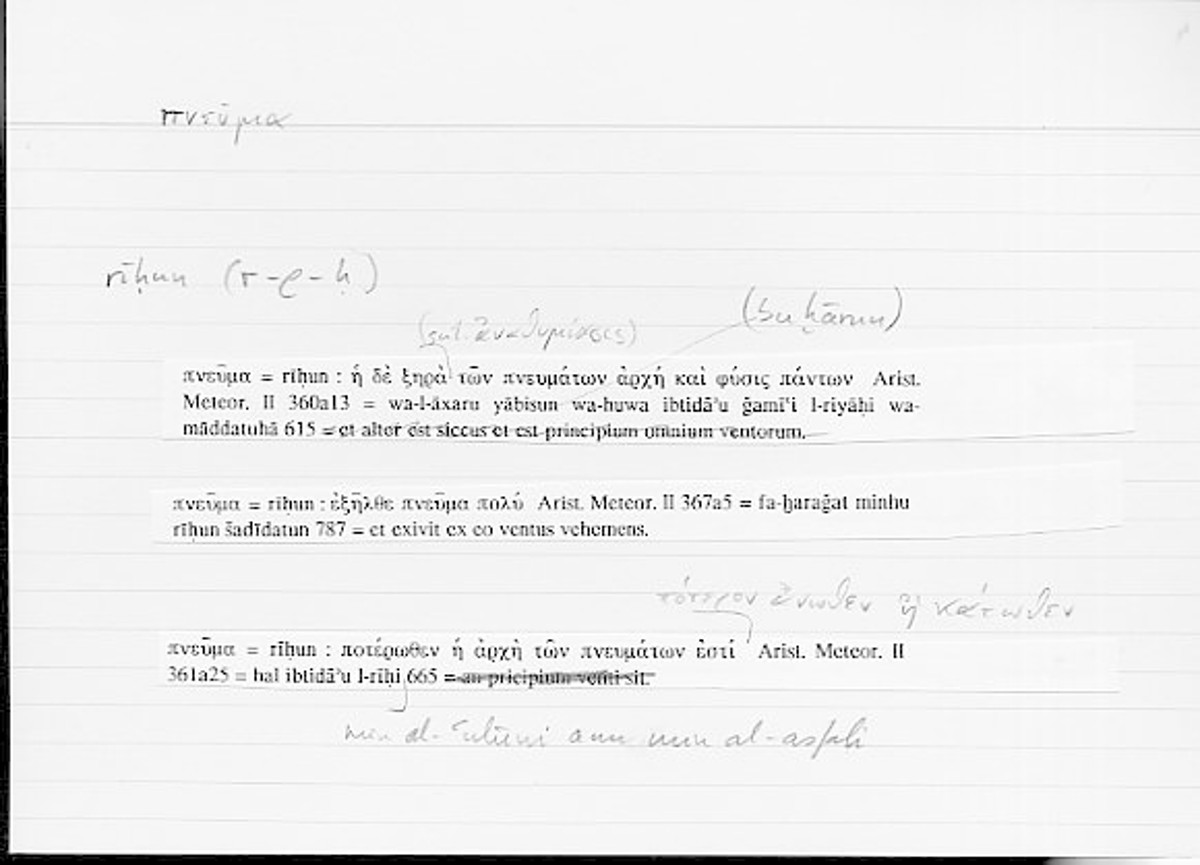 πνεῦμα
rīḥun (r-y-ḥ)
(buḫārun)
(scil. ἀναθυμίασις)
πνεῦμα = rīḥun : ἡ δὲ ξηρὰ τῶν πνευμάτων ἀρχὴ καὶ φύσις πάντων Arist.
Meteor. II 360a13 = wa-l-āxaru yābisun wa-huwa ibtidāʾu ǧamīʿi l-riyāḥi wa-
māddatuhā 615 = et alter est siccus et est principium omnium ventorum.
πνεῦμα = rīḥun : ἐξῆλθε πνεῦμα πολύ Arist. Meteor. II 367a5 = fa-ḫaraǧat minhu
rīḥun šadīdatun 787 = et exivit ex eo ventus vehemens.
πότερον ἄνωθεν ἢ κάτωθεν
πνεῦμα = rīḥun : ποτέρωθεν ἡ ἀρχὴ τῶν πνευμάτων ἐστί Arist. Meteor. II
361a25 = hal ibtidāʾu l-rīḥi 665 = an pricipium venti sit.
min al- am min al-asfali